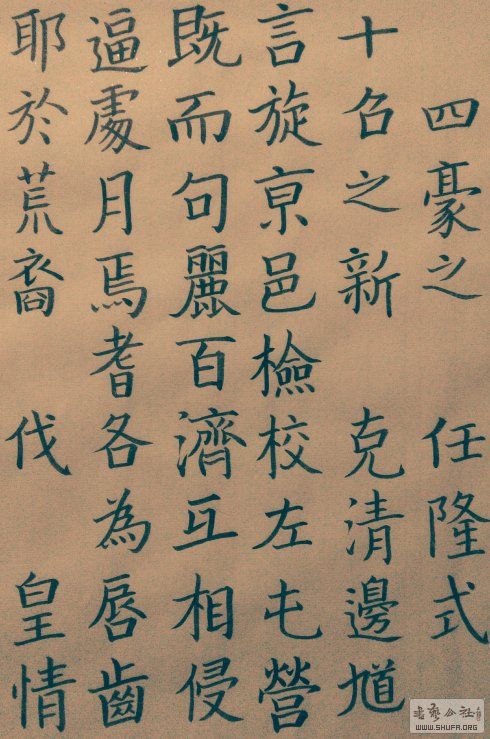 四豪之 任隆式
十名之新 克清邊馗
言旋亰邑檢校左屯營
既而句麗百濟互相侵
逼處月焉耆各為唇齒
耶於荒裔 伐 皇情
書藝公社
WWW.SHUFA.ORG